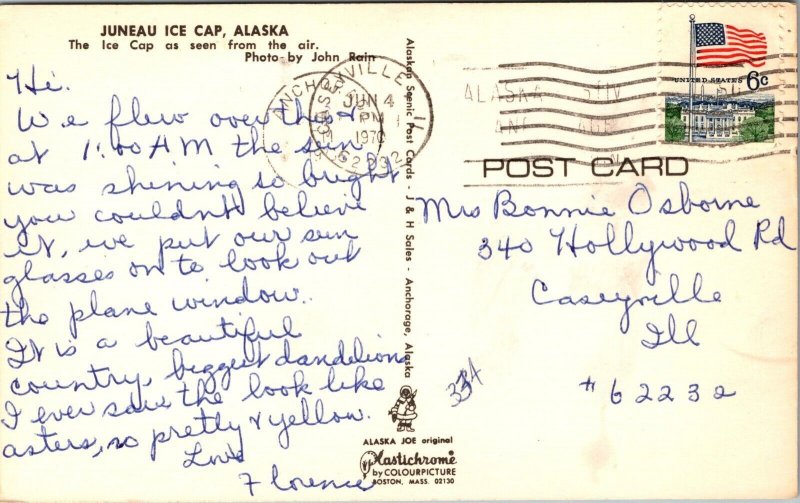 JUNEAU ICE CAP, ALASKA
The Ice Cap as seen from the air.
Photo by John Rain
Hi.
We flew over this
at 1:00 AM the sun
was shining so bright
you couldn't believe
it, we put our sun
glasses on to look out
the plane window..
It is a beautiful
country, biggest dandelions
I ever saw the look like
asters, so pretty & yellow.
Love
Florence
Alaskan Scenic Post Cards - J & H Sales - Anchorage, Alaska
ALASKA JOE original
Plastichrome
by COLOURPICTURE
BOSTON, MASS. 02130
JUN 4
PM
1970
62232
ALASKA
UNITED STATES 6c
POST CARD
Mrs Bonnie Osborne
340 Hollywood Rd
Caseyville
Ill
#62232
334